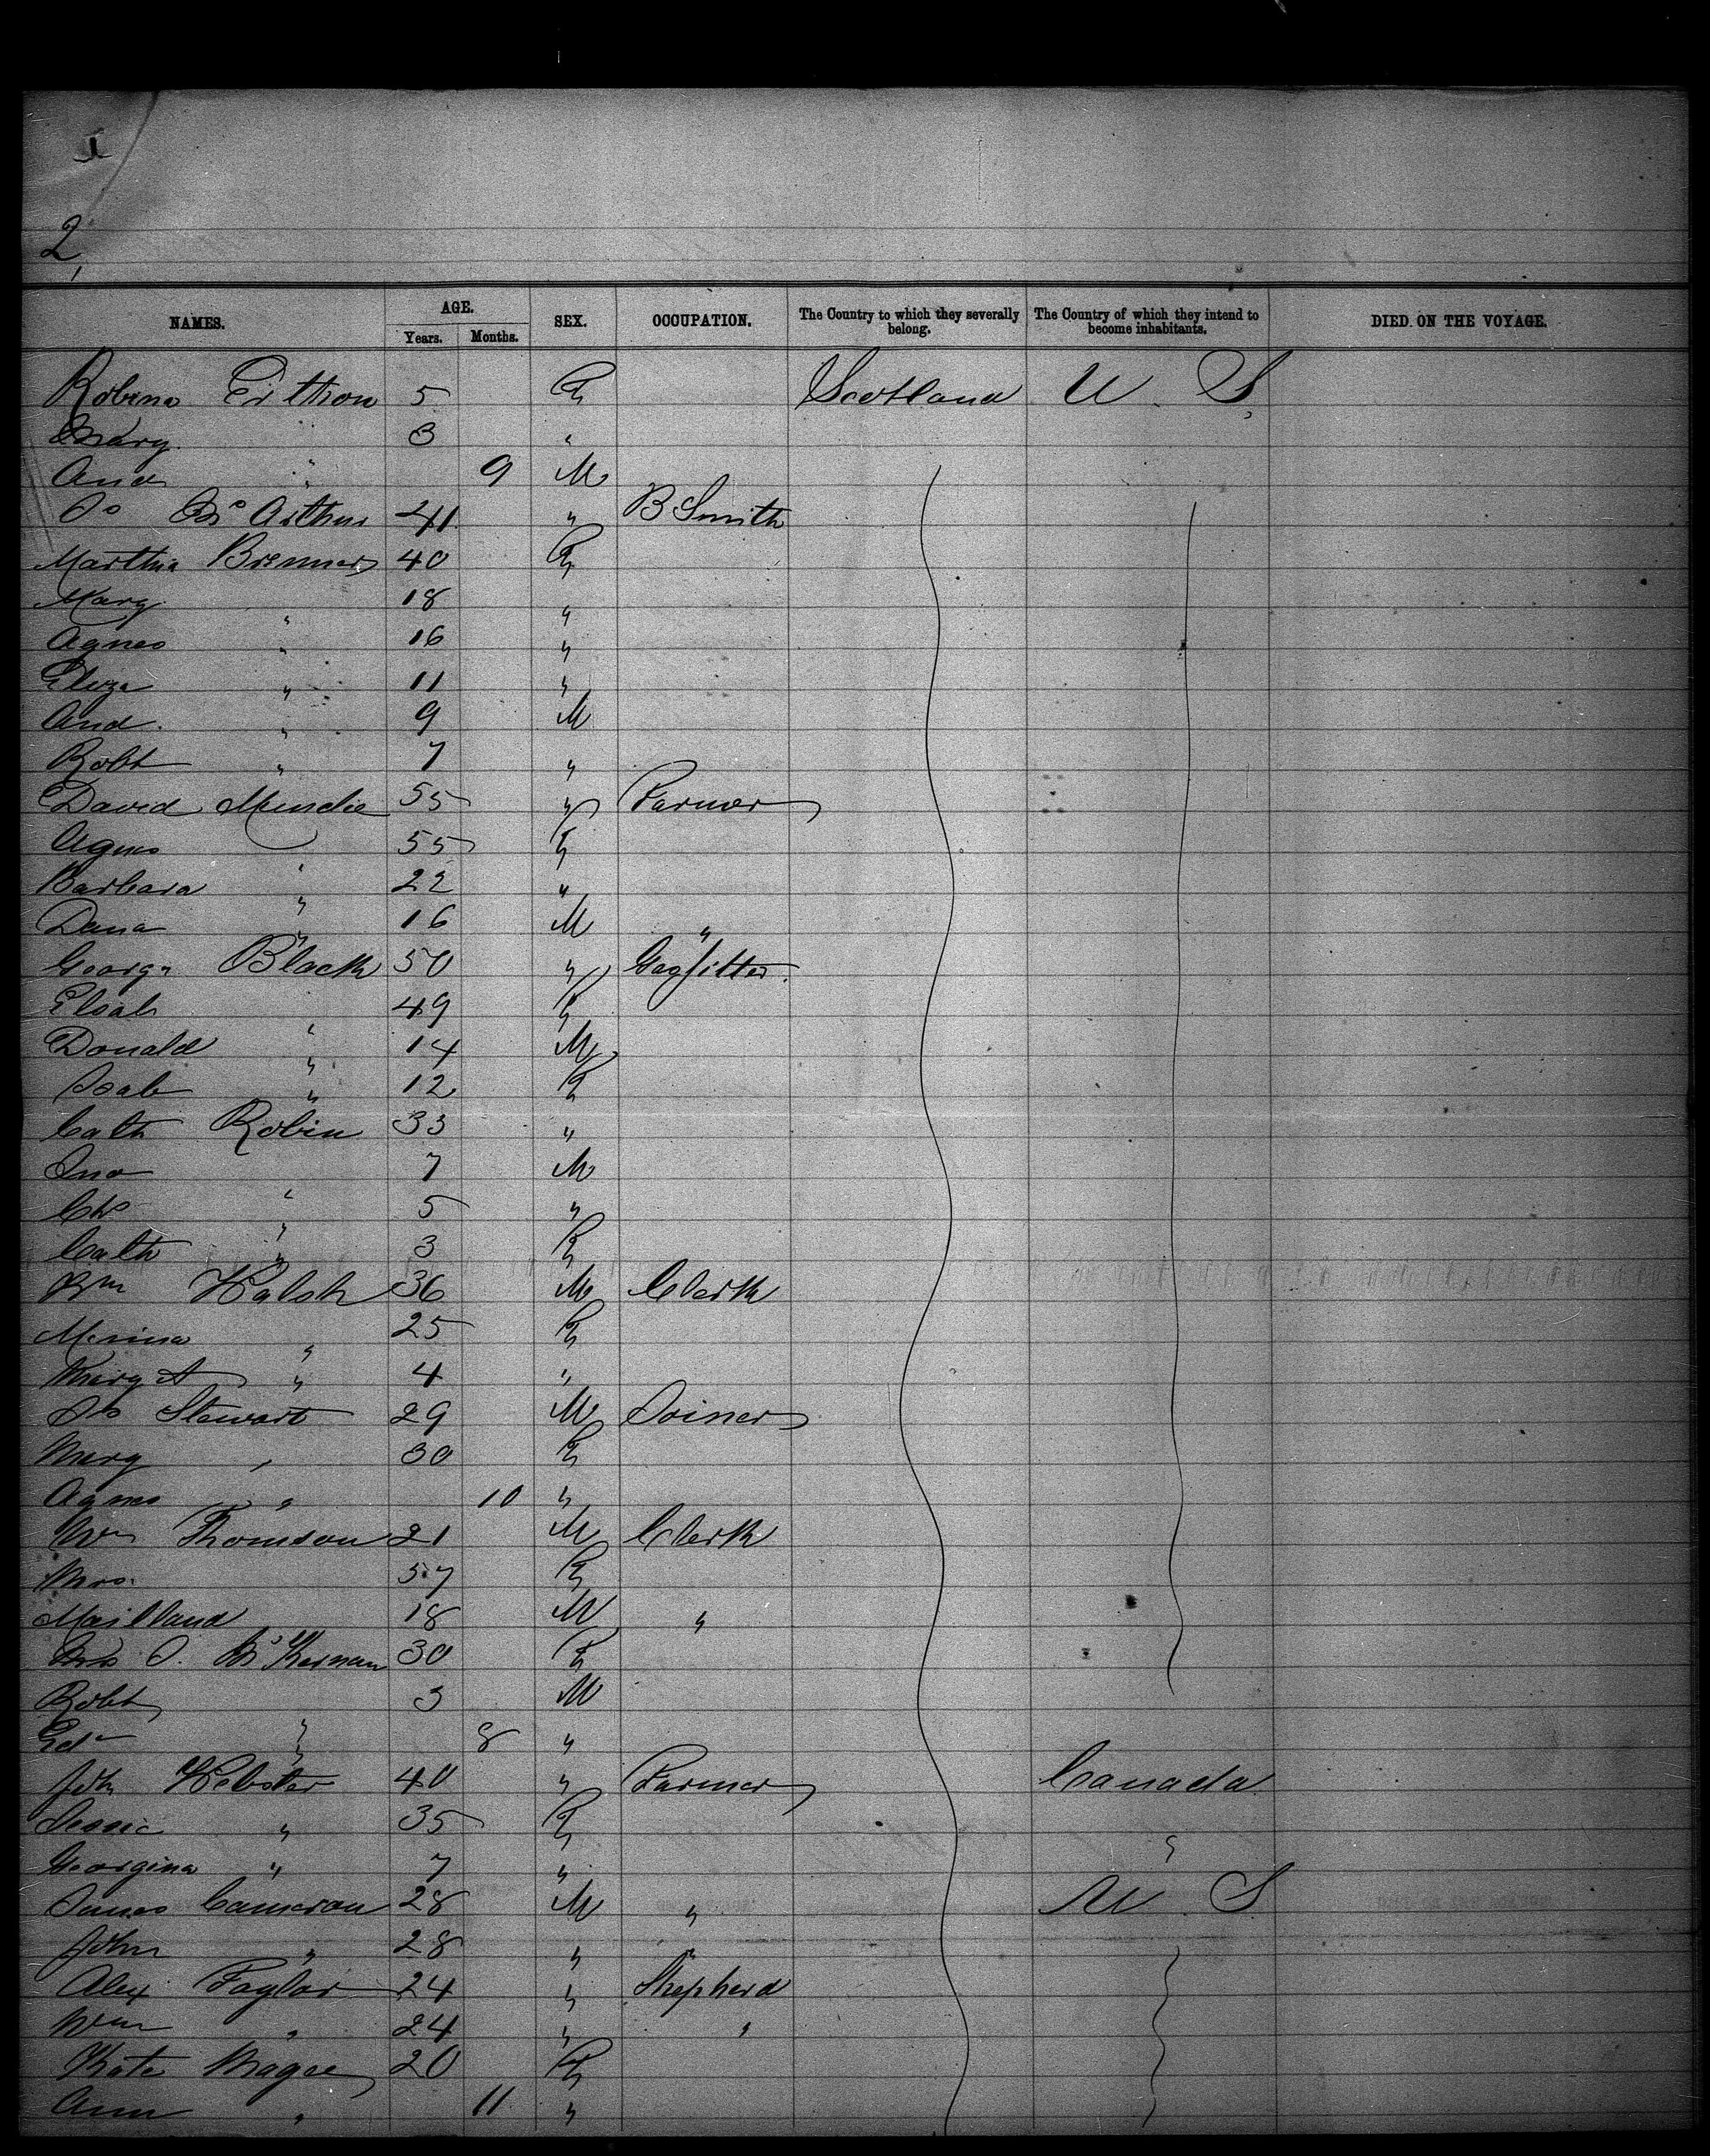 2
NAMES. AGE. SEX. OCCUPATION. The Country to which they severally belong. The Country of which they intend to become inhabitants. DIED ON THE VOYAGE.
Years. Months.
Robina 5 F Scotland U. S
Mary 3 "
And " 9 M
Js McArthur 41 " B Smith
Martha Bremner 40 F
Marg " 18 "
Agnes " 16 "
Eliza " 11 "
And. " 9 M
Robt " 7 "
David Mundie 55 " Farmer
Agnes " 55 F
Barbara " 22 "
" 16 M "
George Black 50 " Gasfitter
" 49 F
Donald " 14 M
Isab " 12 F
Cath Robin 33 "
Jno " 7 M
Chs " 5 "
Cath " 3 F
Wm Walsh 36 M Clerk
" 25 F
Marg A " 4 "
Js Stewart 29 M Joiner
Marg " 30 F
Agnes " 10 "
Wm Thomson 21 M Clerk
Mrs. 57 F
Maitland 18 M "
Mrs J. McKernan 30 F
Robt " 3 M
Edw " 8 "
John Webster 40 " Farmer Canada
Jessie " 35 F "
Georgina " 7 "
James Cameron 28 M " U. S
John " 28 " "
Alex Taylor 24 " Shepherd
Wm " 24 " "
Kate Magee 20 F
Ann " 11 "